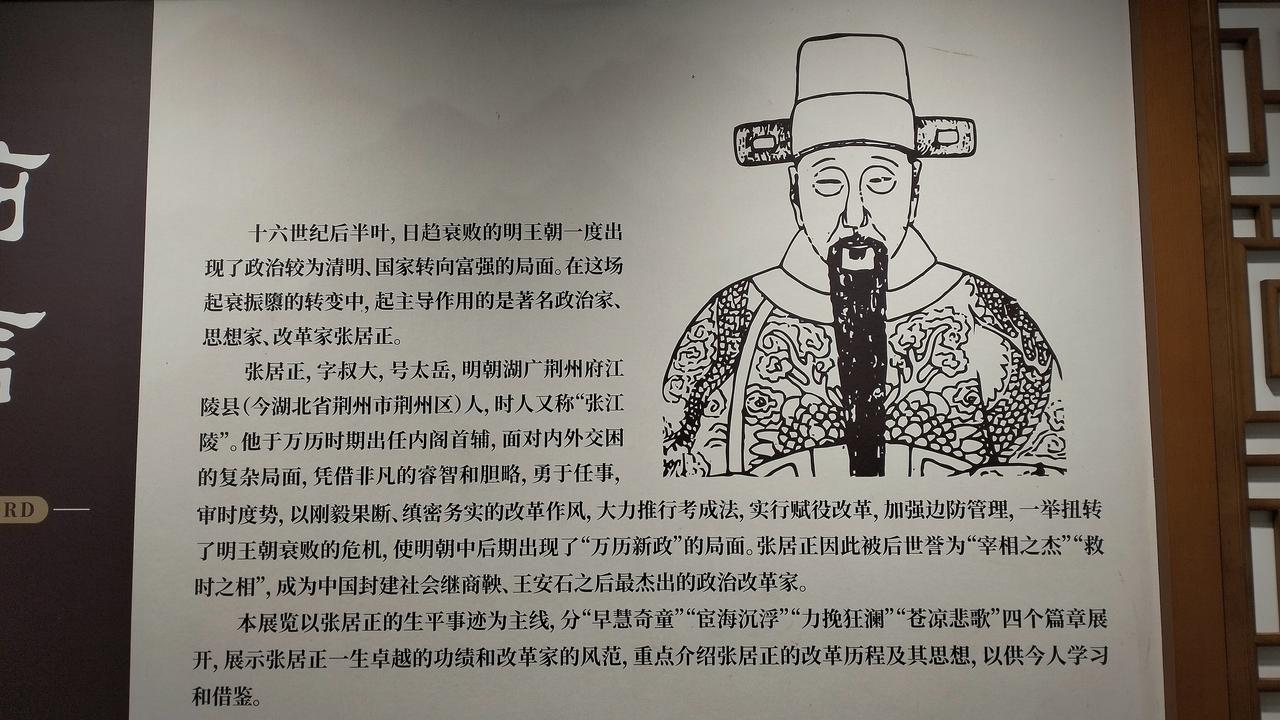 十六世纪后半叶，日趋衰败的明王朝一度出
现了政治较为清明、国家转向富强的局面。在这场
起衰振隳的转变中，起主导作用的是著名政治家、
思想家、改革家张居正。
张居正，字叔大，号太岳，明朝湖广荆州府江
陵县（今湖北省荆州市荆州区）人，时人又称“张江
陵”。他于万历时期出任内阁首辅，面对内外交困
的复杂局面，凭借非凡的睿智和胆略，勇于任事，
审时度势，以刚毅果断、缜密务实的改革作风，大力推行考成法，实行赋役改革，加强边防管理，一举扭转
了明王朝衰败的危机，使明朝中后期出现了“万历新政”的局面。张居正因此被后世誉为“宰相之杰”“救
时之相”，成为中国封建社会继商鞅、王安石之后最杰出的政治改革家。
本展览以张居正的生平事迹为主线，分“早慧奇童”“宦海沉浮”“力挽狂澜”“苍凉悲歌”四个篇章展
开，展示张居正一生卓越的功绩和改革家的风范，重点介绍张居正的改革历程及其思想，以供今人学习
和借鉴。
RD